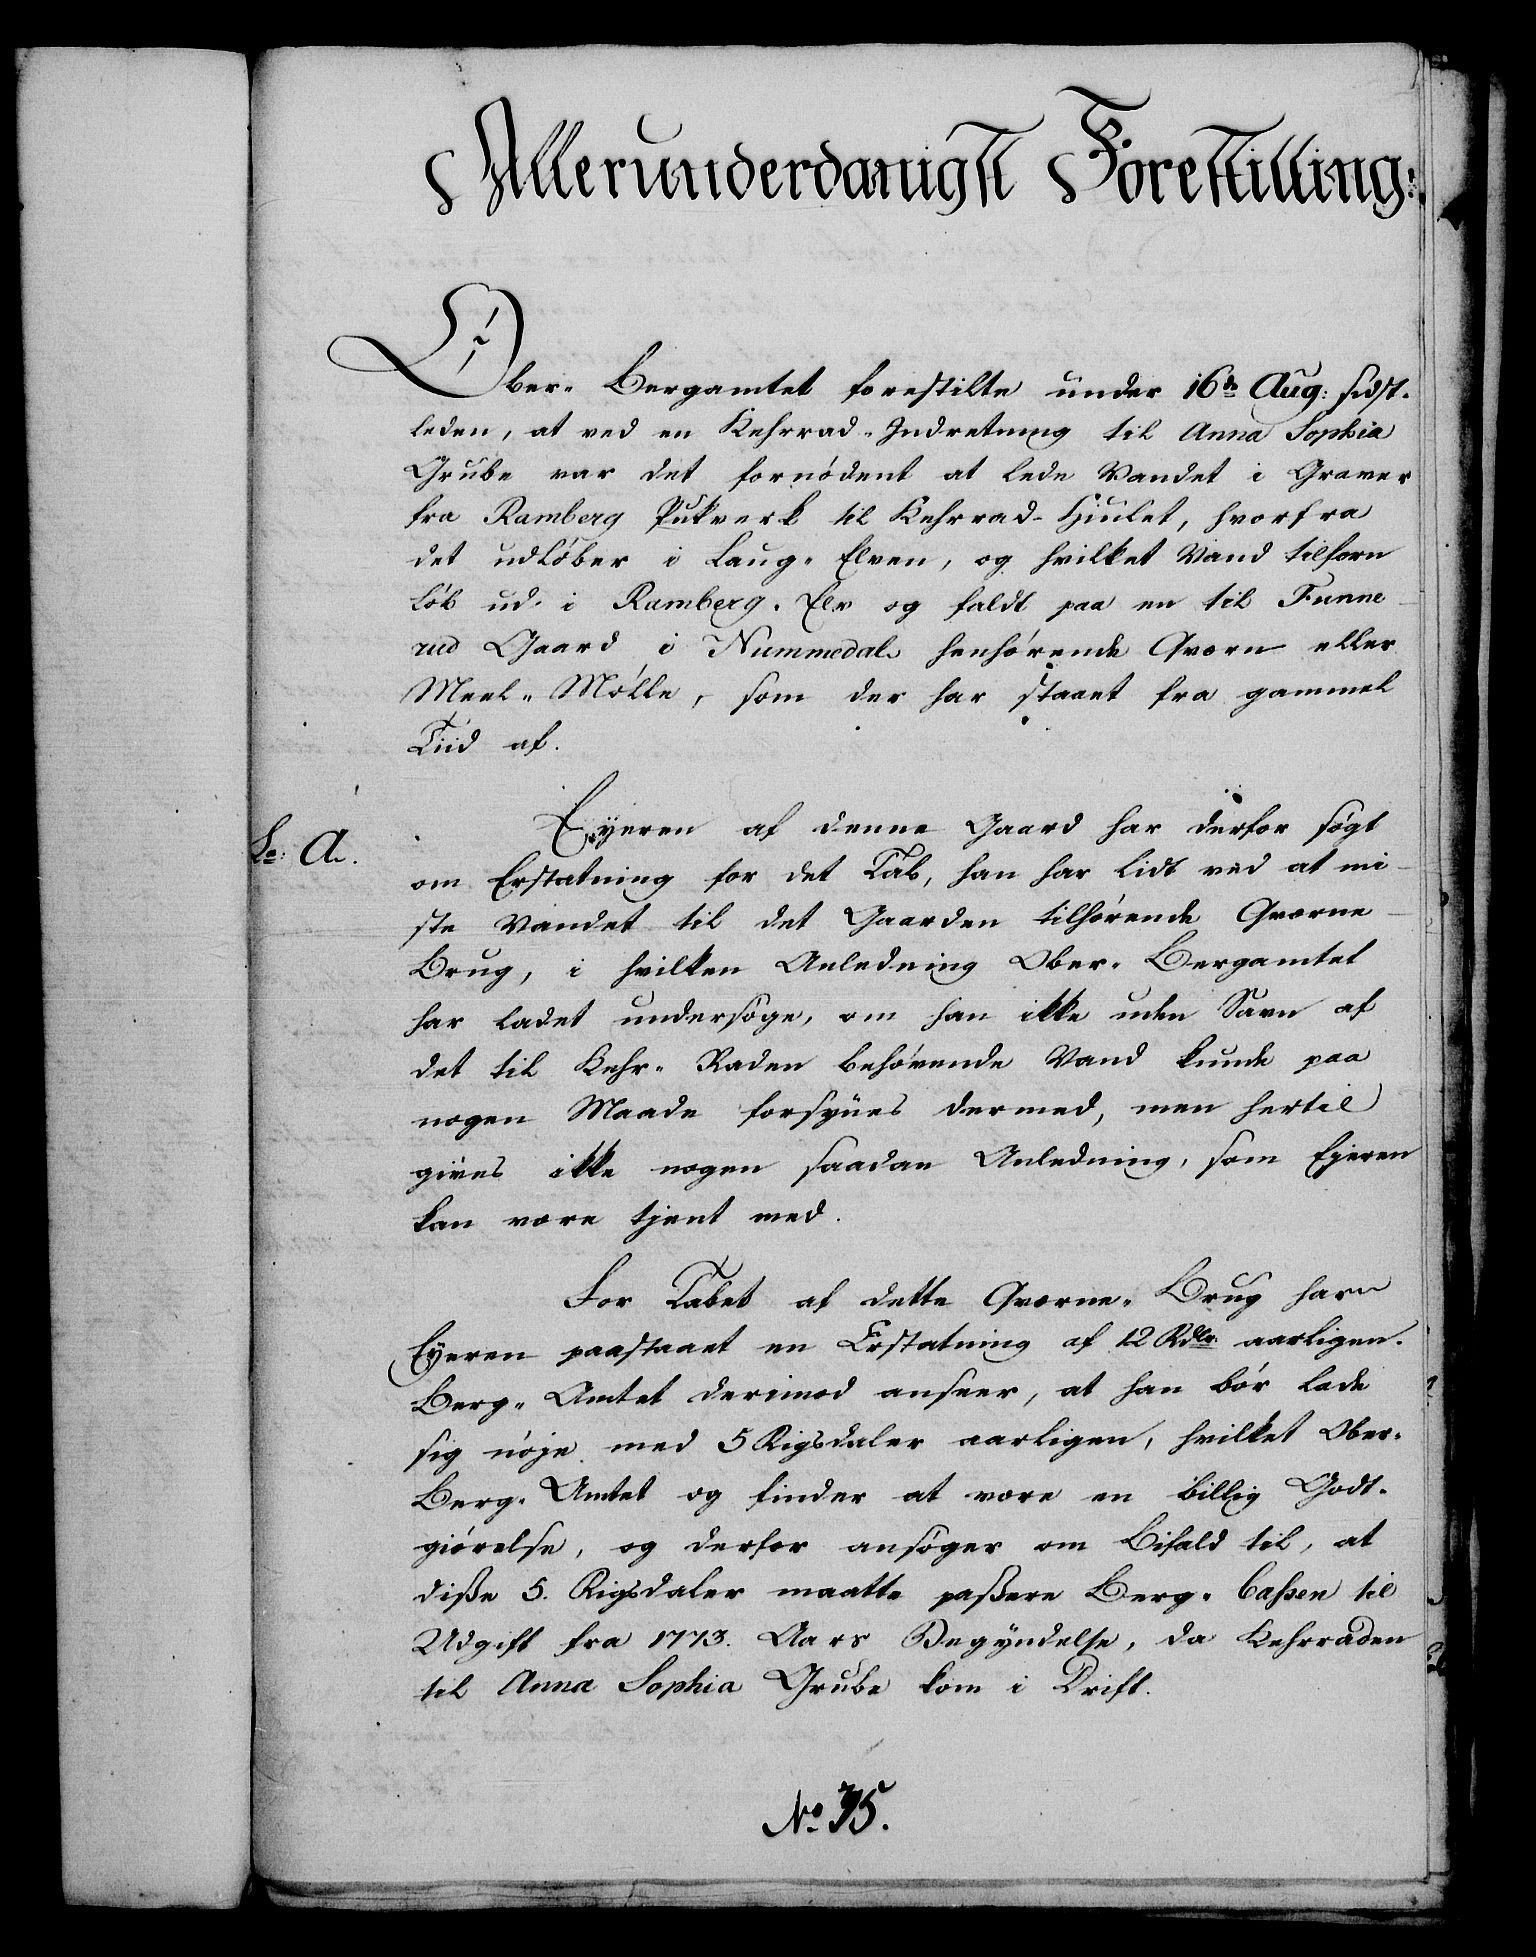 Allerunderdanigst Forestilling:
Ober- Bergamtet forestilte under 16de Aug: sidst-
leden, at ved en Kehrrad-Indretning til Anna Sophia
Grube var det fornödent at lede Vandet i Graver
fra Ramberg Pukverk til Kehrrad-Hiulet, hvorfra
det udlöber i Laug- Elven, og hvilket Vand tilforn
löb ud i Ramberg- Elv og faldt paa en til Funne-
rud Gaard i Nummedal henhörende Qværn eller
Meel- Mölle, som der har staaet fra gammel
Tiid af.
Lr: A.
Eyeren af denne Gaard har derfor sögt
om Erstatning for det Tab, han har lidt ved at mi-
ste Vandet til det Gaarden tilhörende Qværne-
Brug, i hvilken Anledning Ober- Bergamtet
har ladet undersöge, om han ikke uden Savn af
det til Kehr- Raden behövende Vand kunde paa
nogen Maade forsynes dermed, men hertil
gives ikke nogen saadan Anledning, som Ejeren
kan være tjent med.
For Tabet af dette Qværne- Brug har
Eyeren paastaaet en Erstatning af 12 Rdlr: aarligen.
Berg- Amtet derimod anseer, at han bör lade
sig nöje med 5 Rigsdaler aarligen, hvilket Ober-
Berg- Amtet og finder at være en billig Godt-
giörelse, og derfor ansöger om Bifald til, at
diße 5. Rigsdaler maatte paßere Berg- Caßen til
Udgift fra 1773. Aars Begyndelse, da Kehrraden
til Anna Sophia Grube kom i Drift.
No. 75.